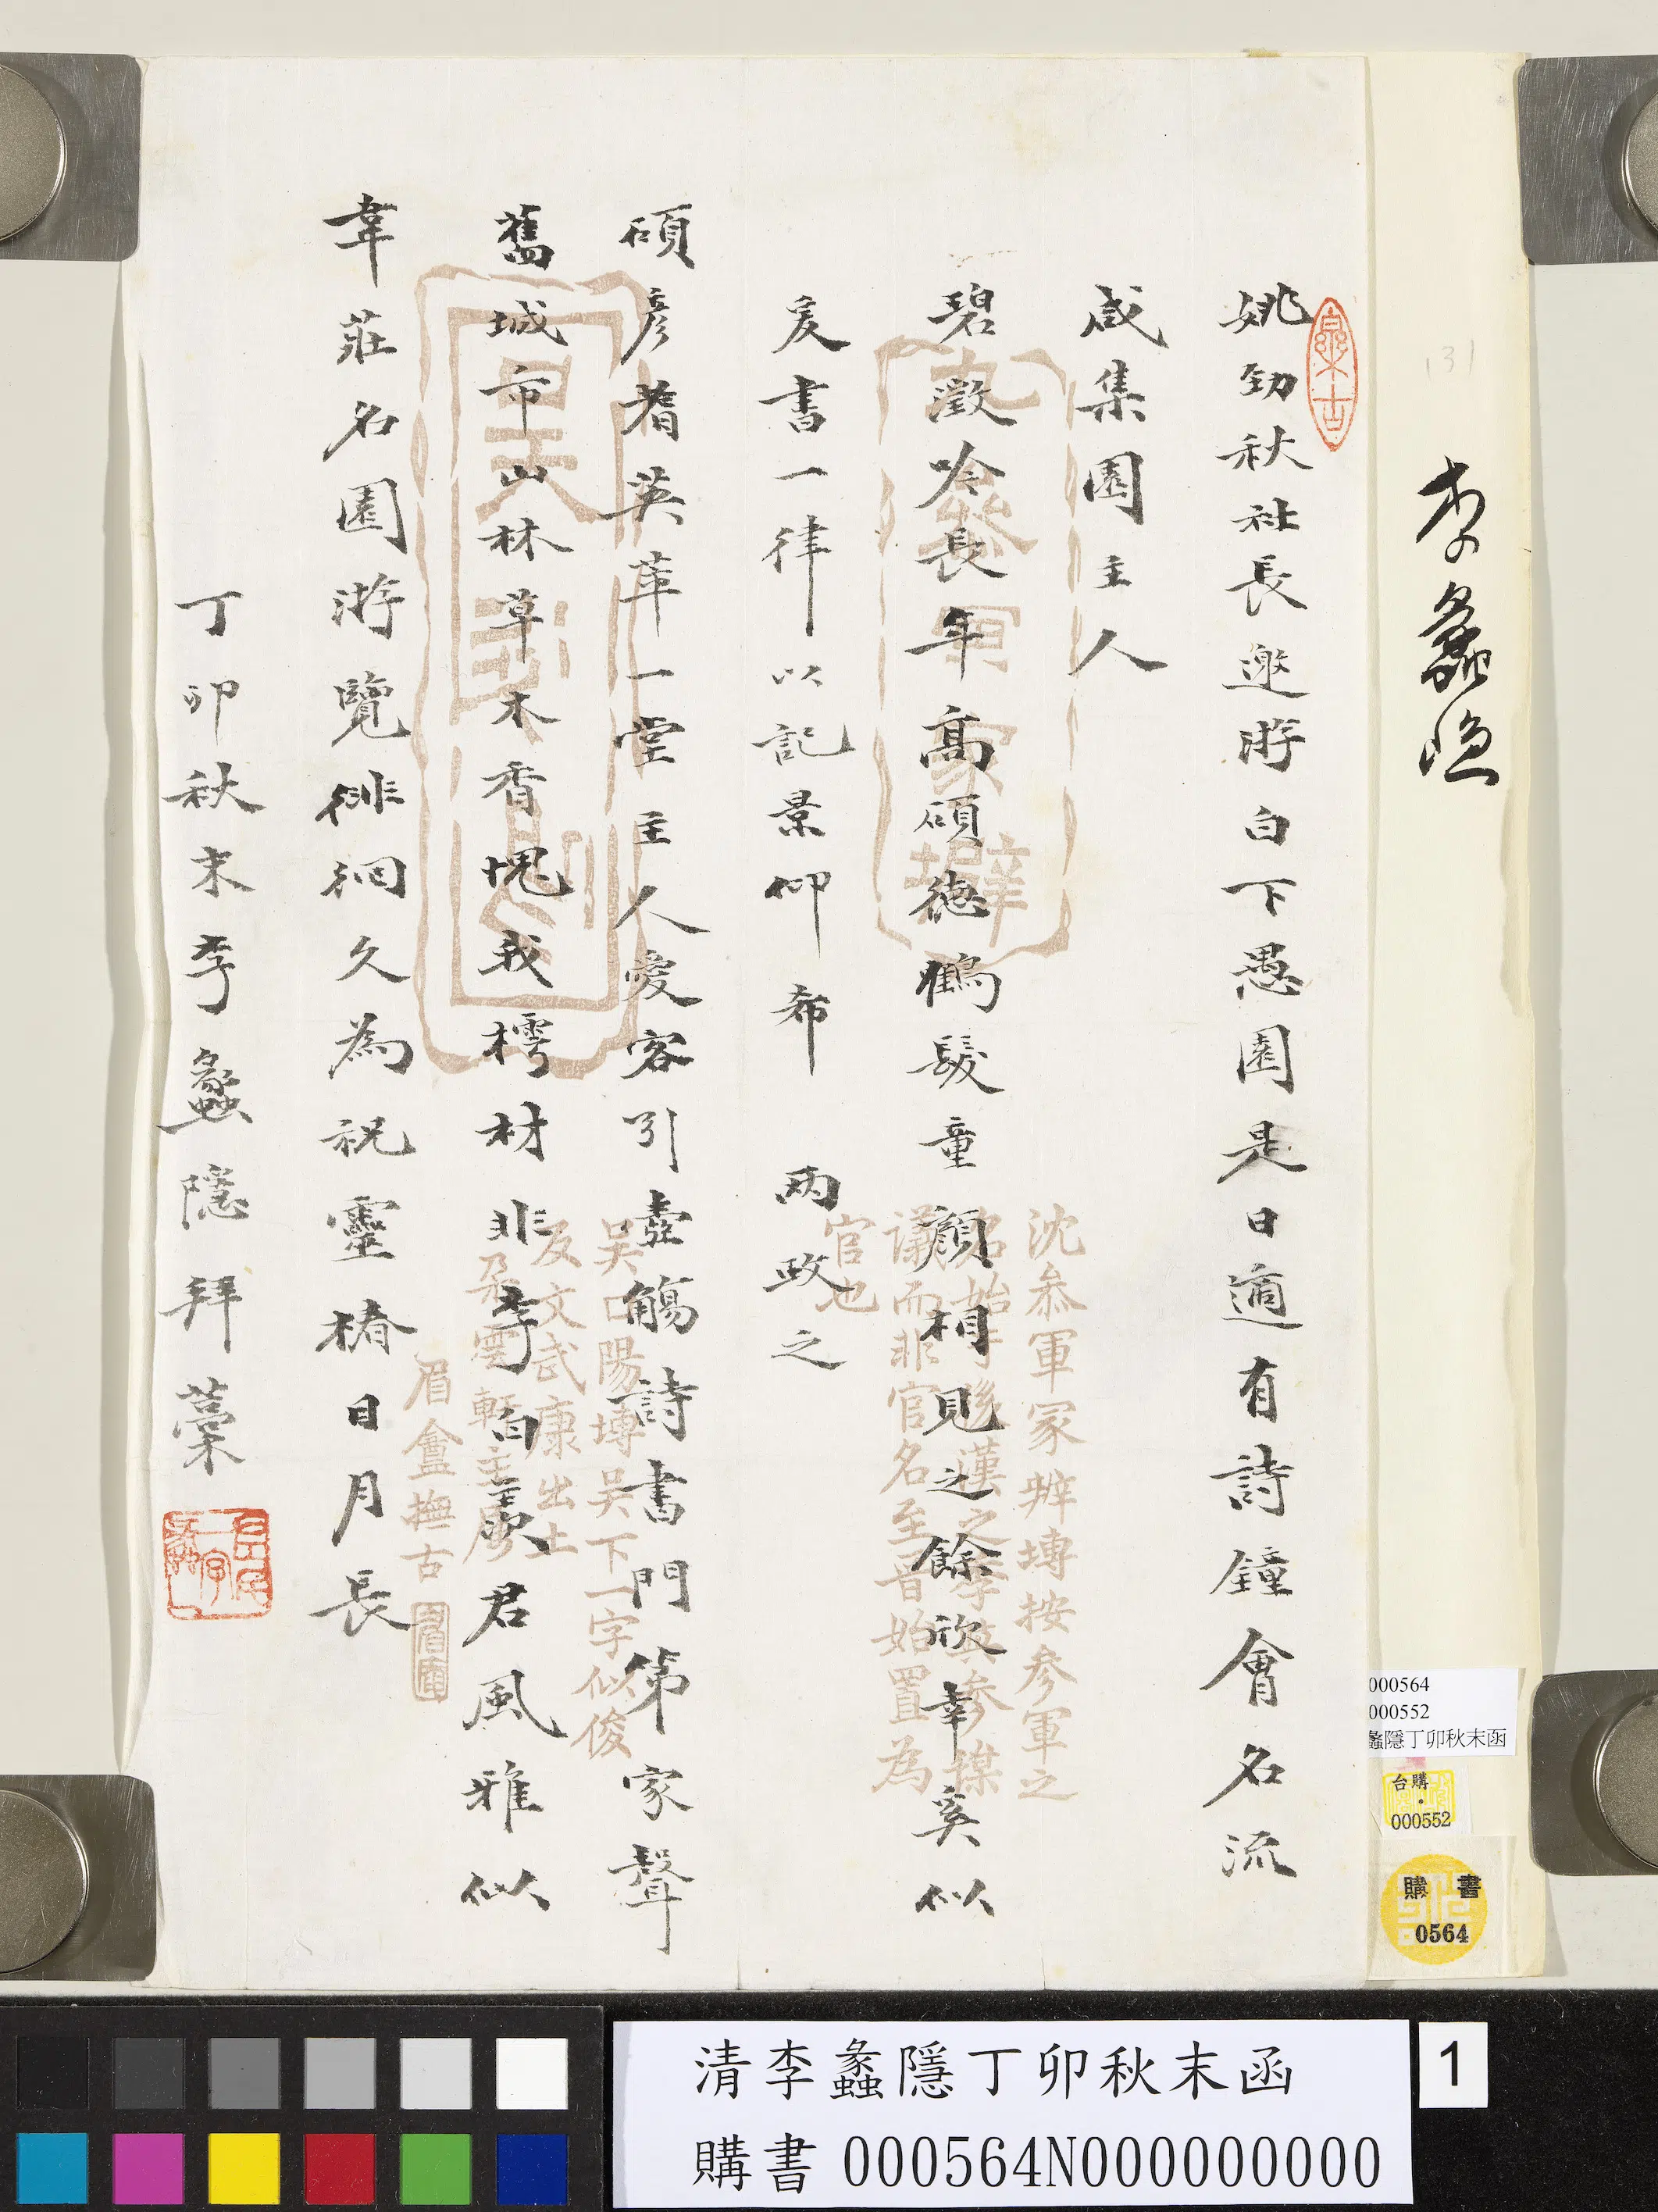 李蠡隱
131
姚劲秋社長邀游白下愚園是日適有詩鐘會名流
咸集園主人
碧澂吟長年高碩德鶴髮童顏相見之餘欣幸奚似
爰書一律以記景仰希 兩政之
碩彥耆英萃一堂主人愛客引壺觴詩書門第家聲
舊城市山林草木香愧我樗材非李白羨君風雅似
韋莊名園游覽徘徊久為祝靈椿日月長
丁卯秋末李蠡隱拜藁
沈叅軍冢辨塼按参軍之
名始于後漢之季其參謀
議而非官名至晉始置為
官也
吳口陽塼吳下一字似俊
及文武康出土
朵雲軒主屬
眉盦撫古
眉盦
000564
000552
蠡隱丁卯秋末函
台購
000552
購書
0564
清李蠡隱丁卯秋末函
購書 000564N000000000
1